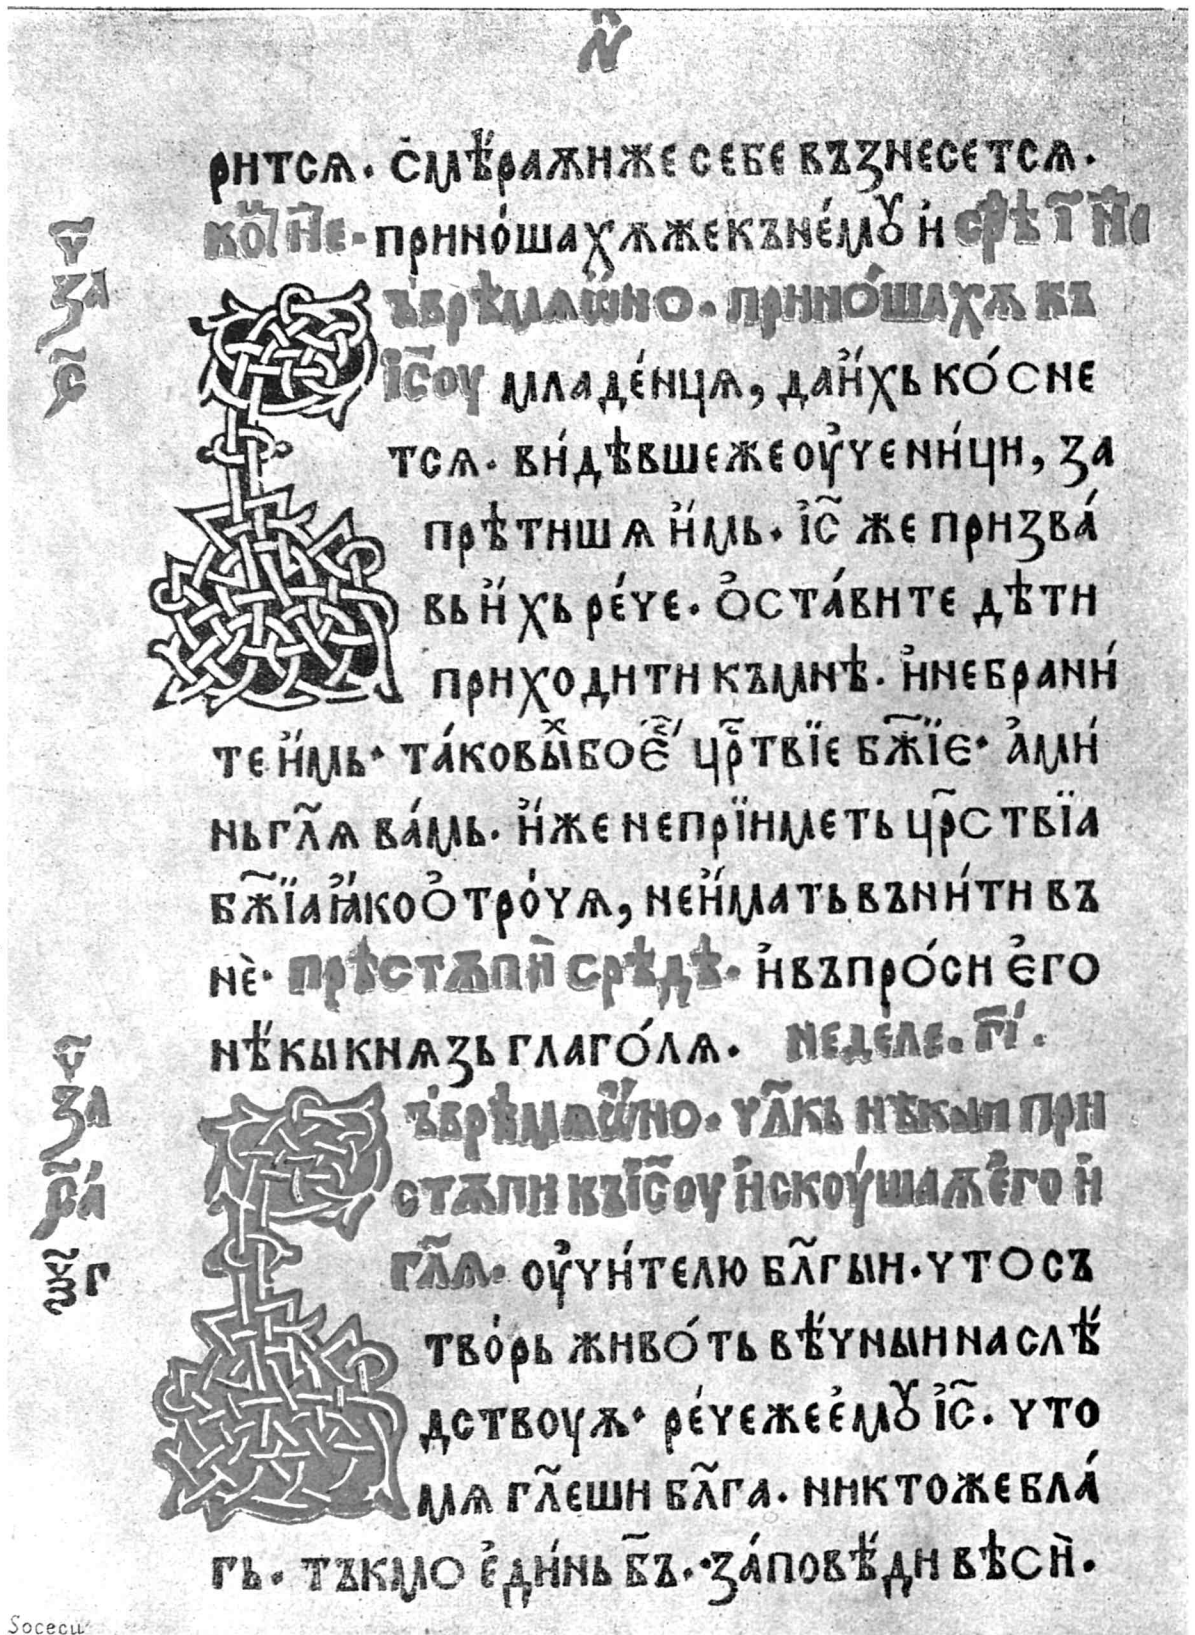 н҃
ритсѧ. с҆мѣ́раѫиже себе възнесетсѧ.
ко҃ не҃. прино́шахѫжекъне́мꙋ и҆ срѣ҃ і҃ н҃
ч҃
за
с҃
ъ́врѣмѧѡ҆́но. прино́шахѫ къ
і҆с҃оу младе́нцѧ, даи҆́хь ко́сне
тсѧ. ви́дѣвшежеоу҆чени́ци, за
прѣтишѧ и҆́мь. і҆с҃ же призва́
вьи҆́хь ре́че. о҆ста́вите дѣти
приходити къмнѣ. и҆небрани́
теи҆́мь. та́ковыⷯ҆боеⷭ҇ црⷭ҇твїе бж҃їе. а҆ми́
ньгл҃ѧ ва́мь. и҆́же непрїиметь цр҃ствїа
бж҃їаꙗ҆́коо҆тро́чѧ, неи҆́мать въни́ти въ
нѐ. прѣстѫпѝ срѣдѣ. и҆въпро́си е҆го
нѣ́кыкнѧзь глаго́лѧ. неделе. г҃і.
ч҃
за
р҃а
ѡ҃ г
ъ́врѣмѧѡ҆́но. чл҃кь нѣкыи при
стѫпи къі҆с҃оу и҆скоу́шаѫе҆го и҆
гл҃ѧ. оу҆чи́телю бл҃гыи. что съ
тво́рь живо́ть вѣ́чныи наслѣ́
дствоуѫ. ре́чежеє҆мꙋ і҆с҃. что
мѧ гл҃еши бл҃га. никтоже бла́
гь. тъкмо е҆ди́нь б҃ъ. за́повѣ́ди вѣсѝ.
Socecu